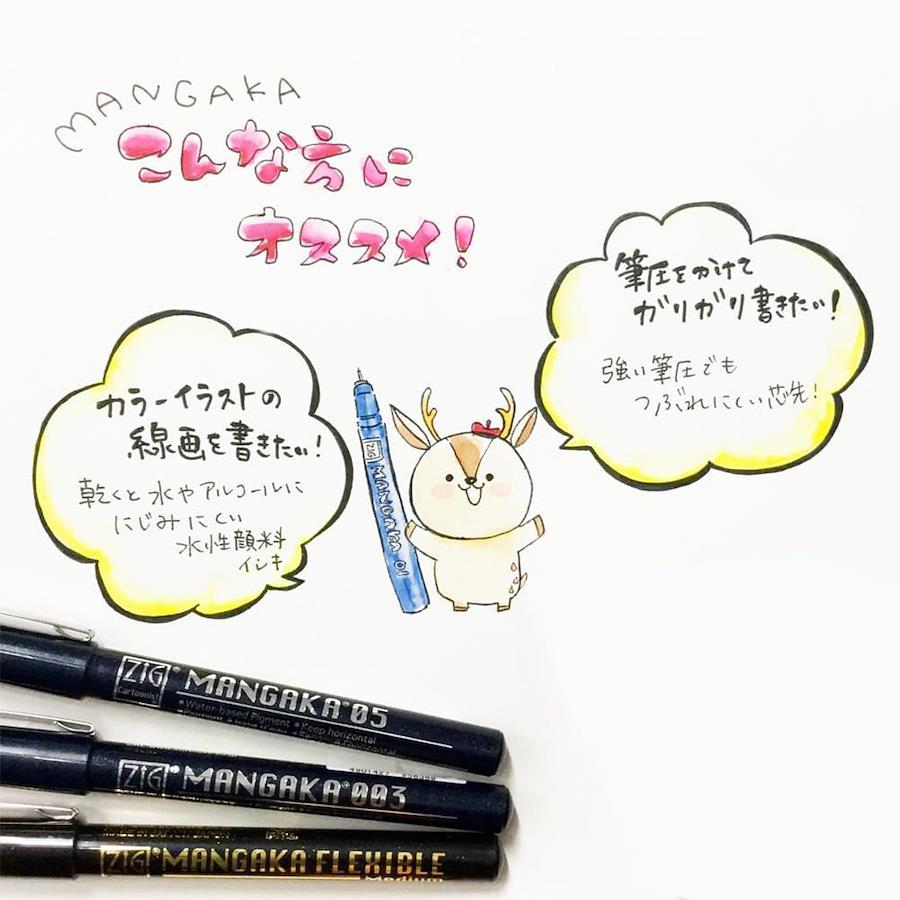 MANGAKA
こんな方に
オススメ!
筆圧をかけて
ガリガリ書きたい!
強い筆圧でも
つぶれにくい芯先!
カラーイラストの
線画を書きたい!
乾くと水やアルコールに
にじみにくい
水性顔料
インキ
ZIG MANGAKA 01
ZIG® MANGAKA® 05
Cartoonist
•Water-based Pigment •Keep horizontal
ZIG® MANGAKA® 003
ZIG® MANGAKA FLEXIBLE
Medium